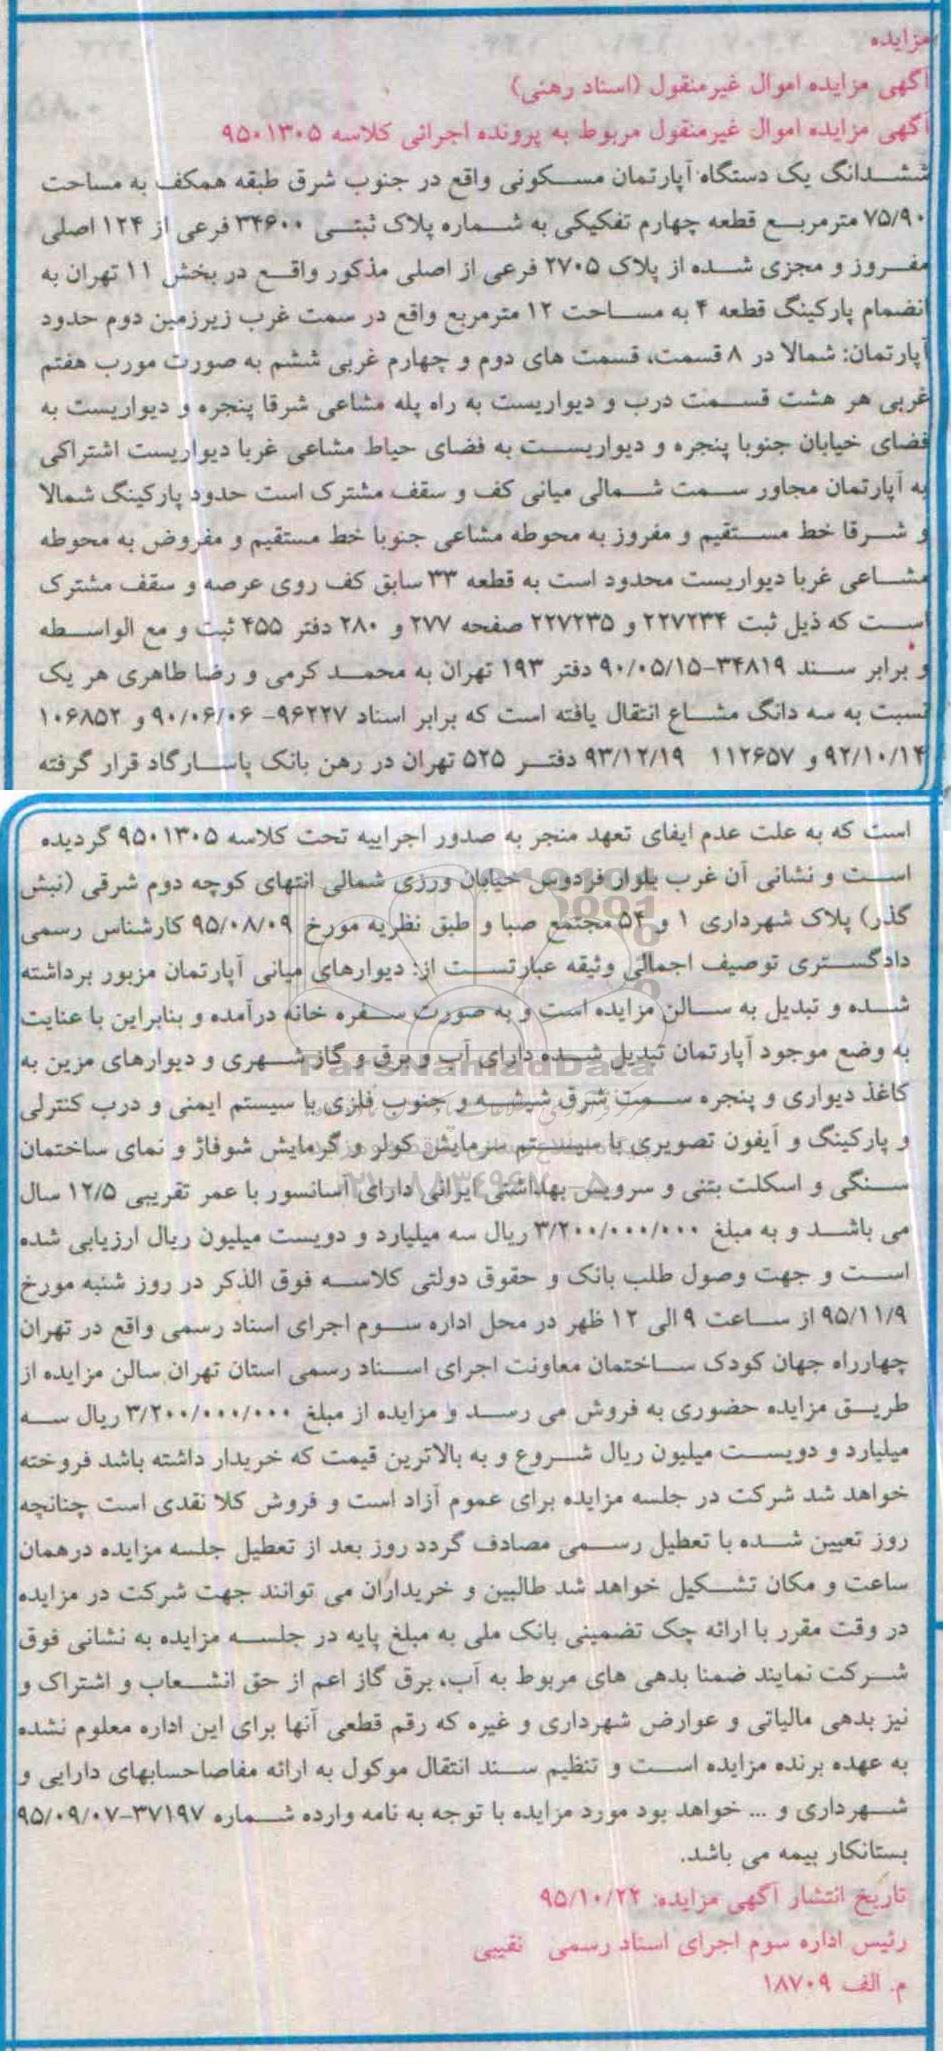 مزایده
آگهی مزایده اموال غیرمنقول (اسناد رهنی)
آگهی مزایده اموال غیرمنقول مربوط به پرونده اجرائی کلاسه ۹۵۰۱۳۰۵
ششدانگ یک دستگاه آپارتمان مسکونی واقع در جنوب شرق طبقه همکف به مساحت
۷۵/۹۰ مترمربع قطعه چهارم تفکیکی به شماره پلاک ثبتی ۳۴۶۰۰ فرعی از ۱۲۴ اصلی
مفروز و مجزی شده از پلاک ۲۷۰۵ فرعی از اصلی مذکور واقع در بخش ۱۱ تهران به
انضمام پارکینگ قطعه ۴ به مساحت ۱۲ مترمربع واقع در سمت غرب زیرزمین دوم حدود
آپارتمان: شمالا در ۸ قسمت، قسمت های دوم و چهارم غربی ششم به صورت مورب هفتم
غربی هر هشت قسمت درب و دیواریست به راه پله مشاعی شرقا پنجره و دیواریست به
فضای خیابان جنوبا پنجره و دیواریست به فضای حیاط مشاعی غربا دیواریست اشتراکی
به آپارتمان مجاور سمت شمالی میانی کف و سقف مشترک است حدود پارکینگ شمالا
و شرقا خط مستقیم و مفروز به محوطه مشاعی جنوبا خط مستقیم و مفروض به محوطه
مشاعی غربا دیواریست محدود است به قطعه ۳۳ سابق کف روی عرصه و سقف مشترک
است که ذیل ثبت ۲۲۷۲۳۴ و ۲۲۷۲۳۵ صفحه ۲۷۷ و ۲۸۰ دفتر ۴۵۵ ثبت و مع الواسطه
و برابر سند ۳۴۸۱۹-۹۰/۰۵/۱۵ دفتر ۱۹۳ تهران به محمد کرمی و رضا طاهری هر یک
نسبت به سه دانگ مشاع انتقال یافته است که برابر اسناد ۹۶۲۲۷- ۹۰/۰۶/۰۶ و ۱۰۶۸۵۲
۹۲/۱۰/۱۴ و ۱۱۲۶۵۷ ۹۳/۱۲/۱۹ دفتر ۵۲۵ تهران در رهن بانک پاسارگاد قرار گرفته
است که به علت عدم ایفای تعهد منجر به صدور اجراییه تحت کلاسه ۹۵۰۱۳۰۵ گردیده
است و نشانی آن غرب بلوار فردوس خیابان ورزی شمالی انتهای کوچه دوم شرقی (نبش
گذر) پلاک شهرداری ۱ و ۵۴ مجتمع صبا و طبق نظریه مورخ ۹۵/۰۸/۰۹ کارشناس رسمی
دادگستری توصیف اجمالی وثیقه عبارتست از: دیوارهای میانی آپارتمان مزبور برداشته
شده و تبدیل به سالن مزایده است و به صورت سفره خانه درآمده و بنابراین با عنایت
به وضع موجود آپارتمان تبدیل شده دارای آب و برق و گاز شهری و دیوارهای مزین به
کاغذ دیواری و پنجره سمت شرق شیشه و جنوب فلزی با سیستم ایمنی و درب کنترلی
و پارکینگ و آیفون تصویری با سیستم سرمایش کولر و گرمایش شوفاژ و نمای ساختمان
سنگی و اسکلت بتنی و سرویس بهداشتی ایرانی دارای آسانسور با عمر تقریبی ۱۲/۵ سال
می باشد و به مبلغ ۳/۲۰۰/۰۰۰/۰۰۰ ریال سه میلیارد و دویست میلیون ریال ارزیابی شده
است و جهت وصول طلب بانک و حقوق دولتی کلاسه فوق الذکر در روز شنبه مورخ
۹۵/۱۱/۹ از ساعت ۹ الی ۱۲ ظهر در محل اداره سوم اجرای اسناد رسمی واقع در تهران
چهارراه جهان کودک ساختمان معاونت اجرای اسناد رسمی استان تهران سالن مزایده از
طریق مزایده حضوری به فروش می رسد و مزایده از مبلغ ۳/۲۰۰/۰۰۰/۰۰۰ ریال سه
میلیارد و دویست میلیون ریال شروع و به بالاترین قیمت که خریدار داشته باشد فروخته
خواهد شد شرکت در جلسه مزایده برای عموم آزاد است و فروش کلا نقدی است چنانچه
روز تعیین شده با تعطیل رسمی مصادف گردد روز بعد از تعطیل جلسه مزایده درهمان
ساعت و مکان تشکیل خواهد شد طالبین و خریداران می توانند جهت شرکت در مزایده
در وقت مقرر با ارائه چک تضمینی بانک ملی به مبلغ پایه در جلسه مزایده به نشانی فوق
شرکت نمایند ضمنا بدهی های مربوط به آب، برق گاز اعم از حق انشعاب و اشتراک و
نیز بدهی مالیاتی و عوارض شهرداری و غیره که رقم قطعی آنها برای این اداره معلوم نشده
به عهده برنده مزایده است و تنظیم سند انتقال موکول به ارائه مفاصاحسابهای دارایی و
شهرداری و ... خواهد بود مورد مزایده با توجه به نامه وارده شماره ۳۷۱۹۷-۹۵/۰۹/۰۷
بستانکار بیمه می باشد.
تاریخ انتشار آگهی مزایده: ۹۵/۱۰/۲۲
رئیس اداره سوم اجرای اسناد رسمی نقیبی
م. الف ۱۸۷۰۹
ParsNamadData